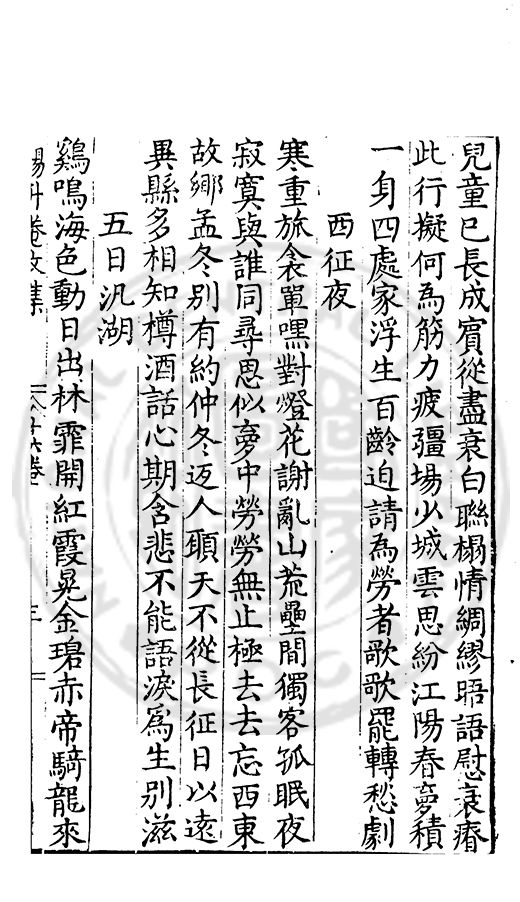 兒童已長成賓從盡衰白聯榻情綢繆晤語慰衰瘠
此行擬何為筋力疲疆場火城雲思紛江陽春夢積
一身四處家浮生百齡迫請為勞者歌歌罷轉愁劇
西征夜
寒重旅衾單嘿對燈花謝亂山荒壘間獨客孤眠夜
寂寞與誰同尋思似夢中勞勞無止極去去忘西東
故鄉孟冬別有約仲冬返人願天不從長征日以遠
異縣多相知樽酒話心期含悲不能語淚為生別滋
五日汎湖
鷄鳴海色動日出林霏開紅霞晃金碧赤帝騎龍來
卷文集 卷